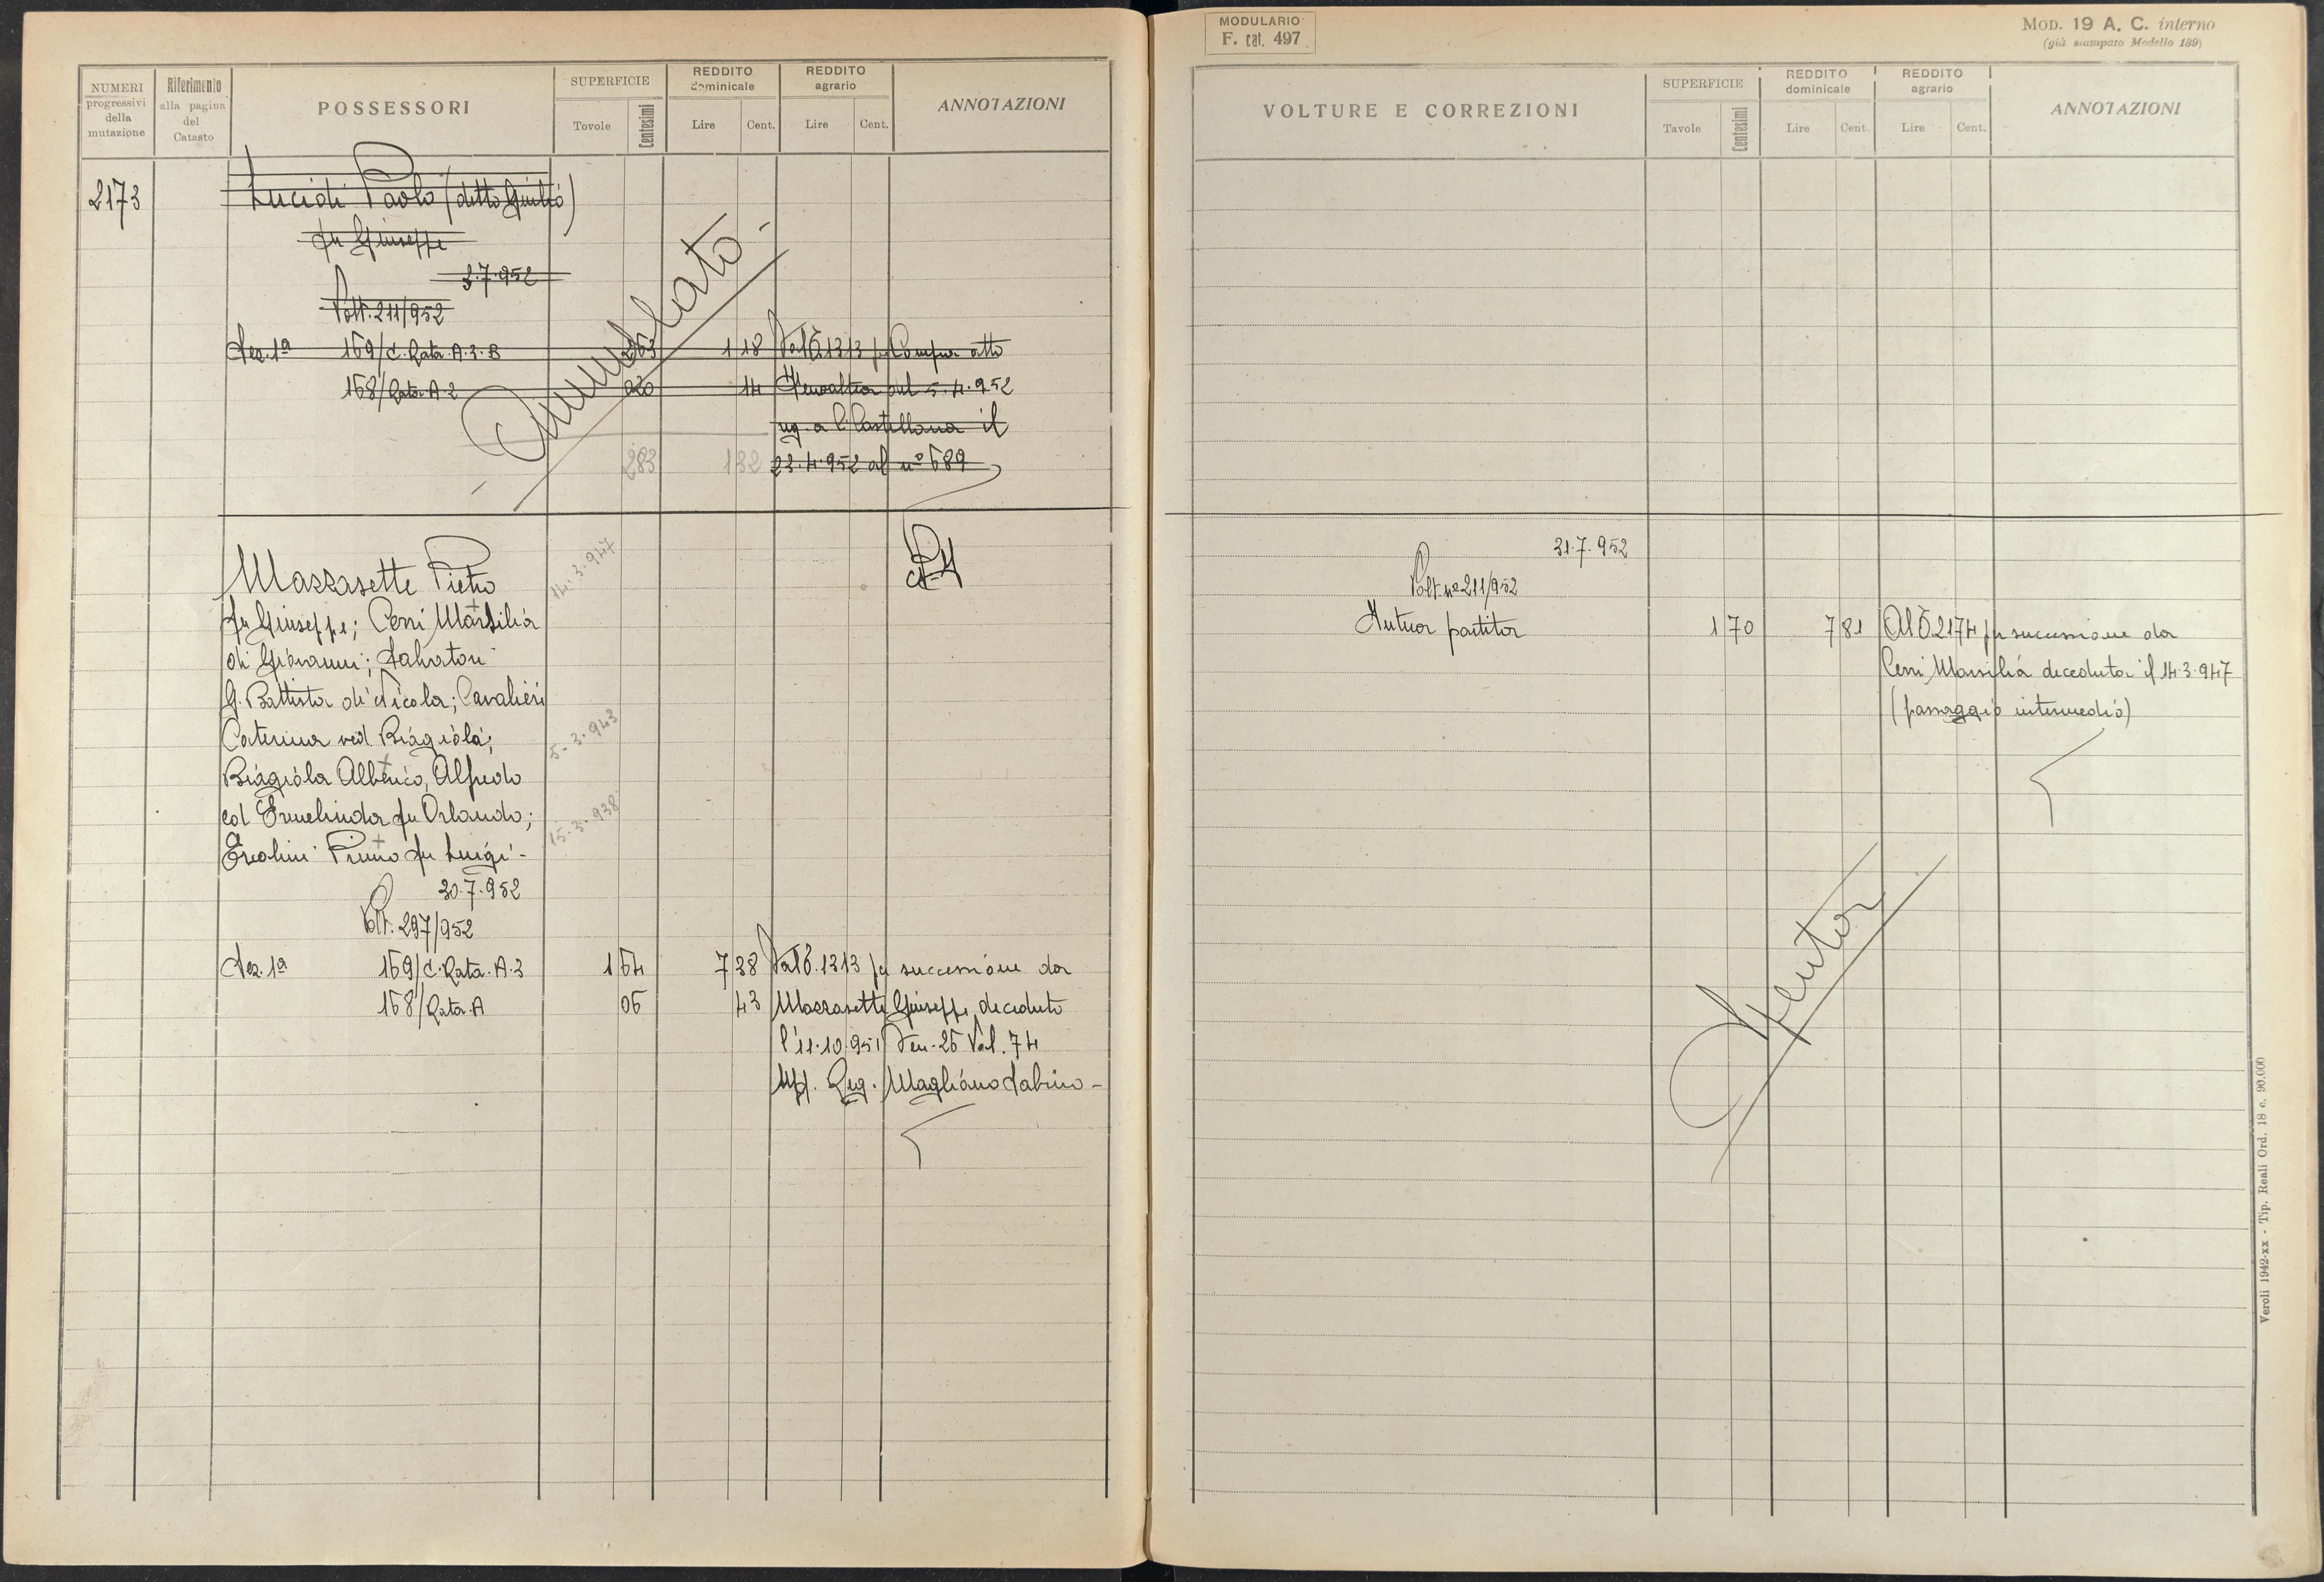 NUMERI progressivi della mutazione
Riferimento alla pagina del Catasto
POSSESSORI
SUPERFICIE
Tavole
Centesimi
REDDITO dominicale
Lire
Cent.
REDDITO agrario
Lire
Cent.
ANNOTAZIONI
2173
Lucidi Paolo (detto
fu Giuseppe
2.7.952
Volt. 211/952
Sez. 1ª 169/C. Rata. A.3.B 263 1 18 Dal 1313 per Compra atto
168/Rata. A.2 020 14 del 5.4.952
reg. a C. Castellana il
283 1 32 23.4.952 al nº 689
Annullato
Mazzasette Pietro 14.3.947
fu Giuseppe; Cerri Marsilia
di Giovanni; Salvatori
G. Battista di Nicola; Cavalieri
Caterina ved. Biagiola; 5.3.943
Biagiola Alberico, Alfredo
ed Ermelinda fu Orlando; 15.3.938
Ercolini Primo fu Luigi -
30.7.952
Volt. 297/952
Sez. 1ª 169/C. Rata. A.3 1 64 7 38 Dal 1313 per successione da
168/Rata. A 06 43 Mazzasette Giuseppe deceduto
l'11.10.951 Den. 26 Vol. 74
Uff. Reg. Magliano Sabino -
MODULARIO
F. cat. 497
MOD. 19 A. C. interno
(già stampato Modello 189)
VOLTURE E CORREZIONI
SUPERFICIE
Tavole
Centesimi
REDDITO dominicale
Lire
Cent.
REDDITO agrario
Lire
Cent.
ANNOTAZIONI
31.7.952
Volt. nº 211/952
Intera partita 1 70 7 81 Al 2174 per successione da
Cerri Marsilia deceduta il 14.3.947
(passaggio intermedio)
Spenta
Veroli 1942-XX - Tip. Reali Ord. 18 c. 90.000